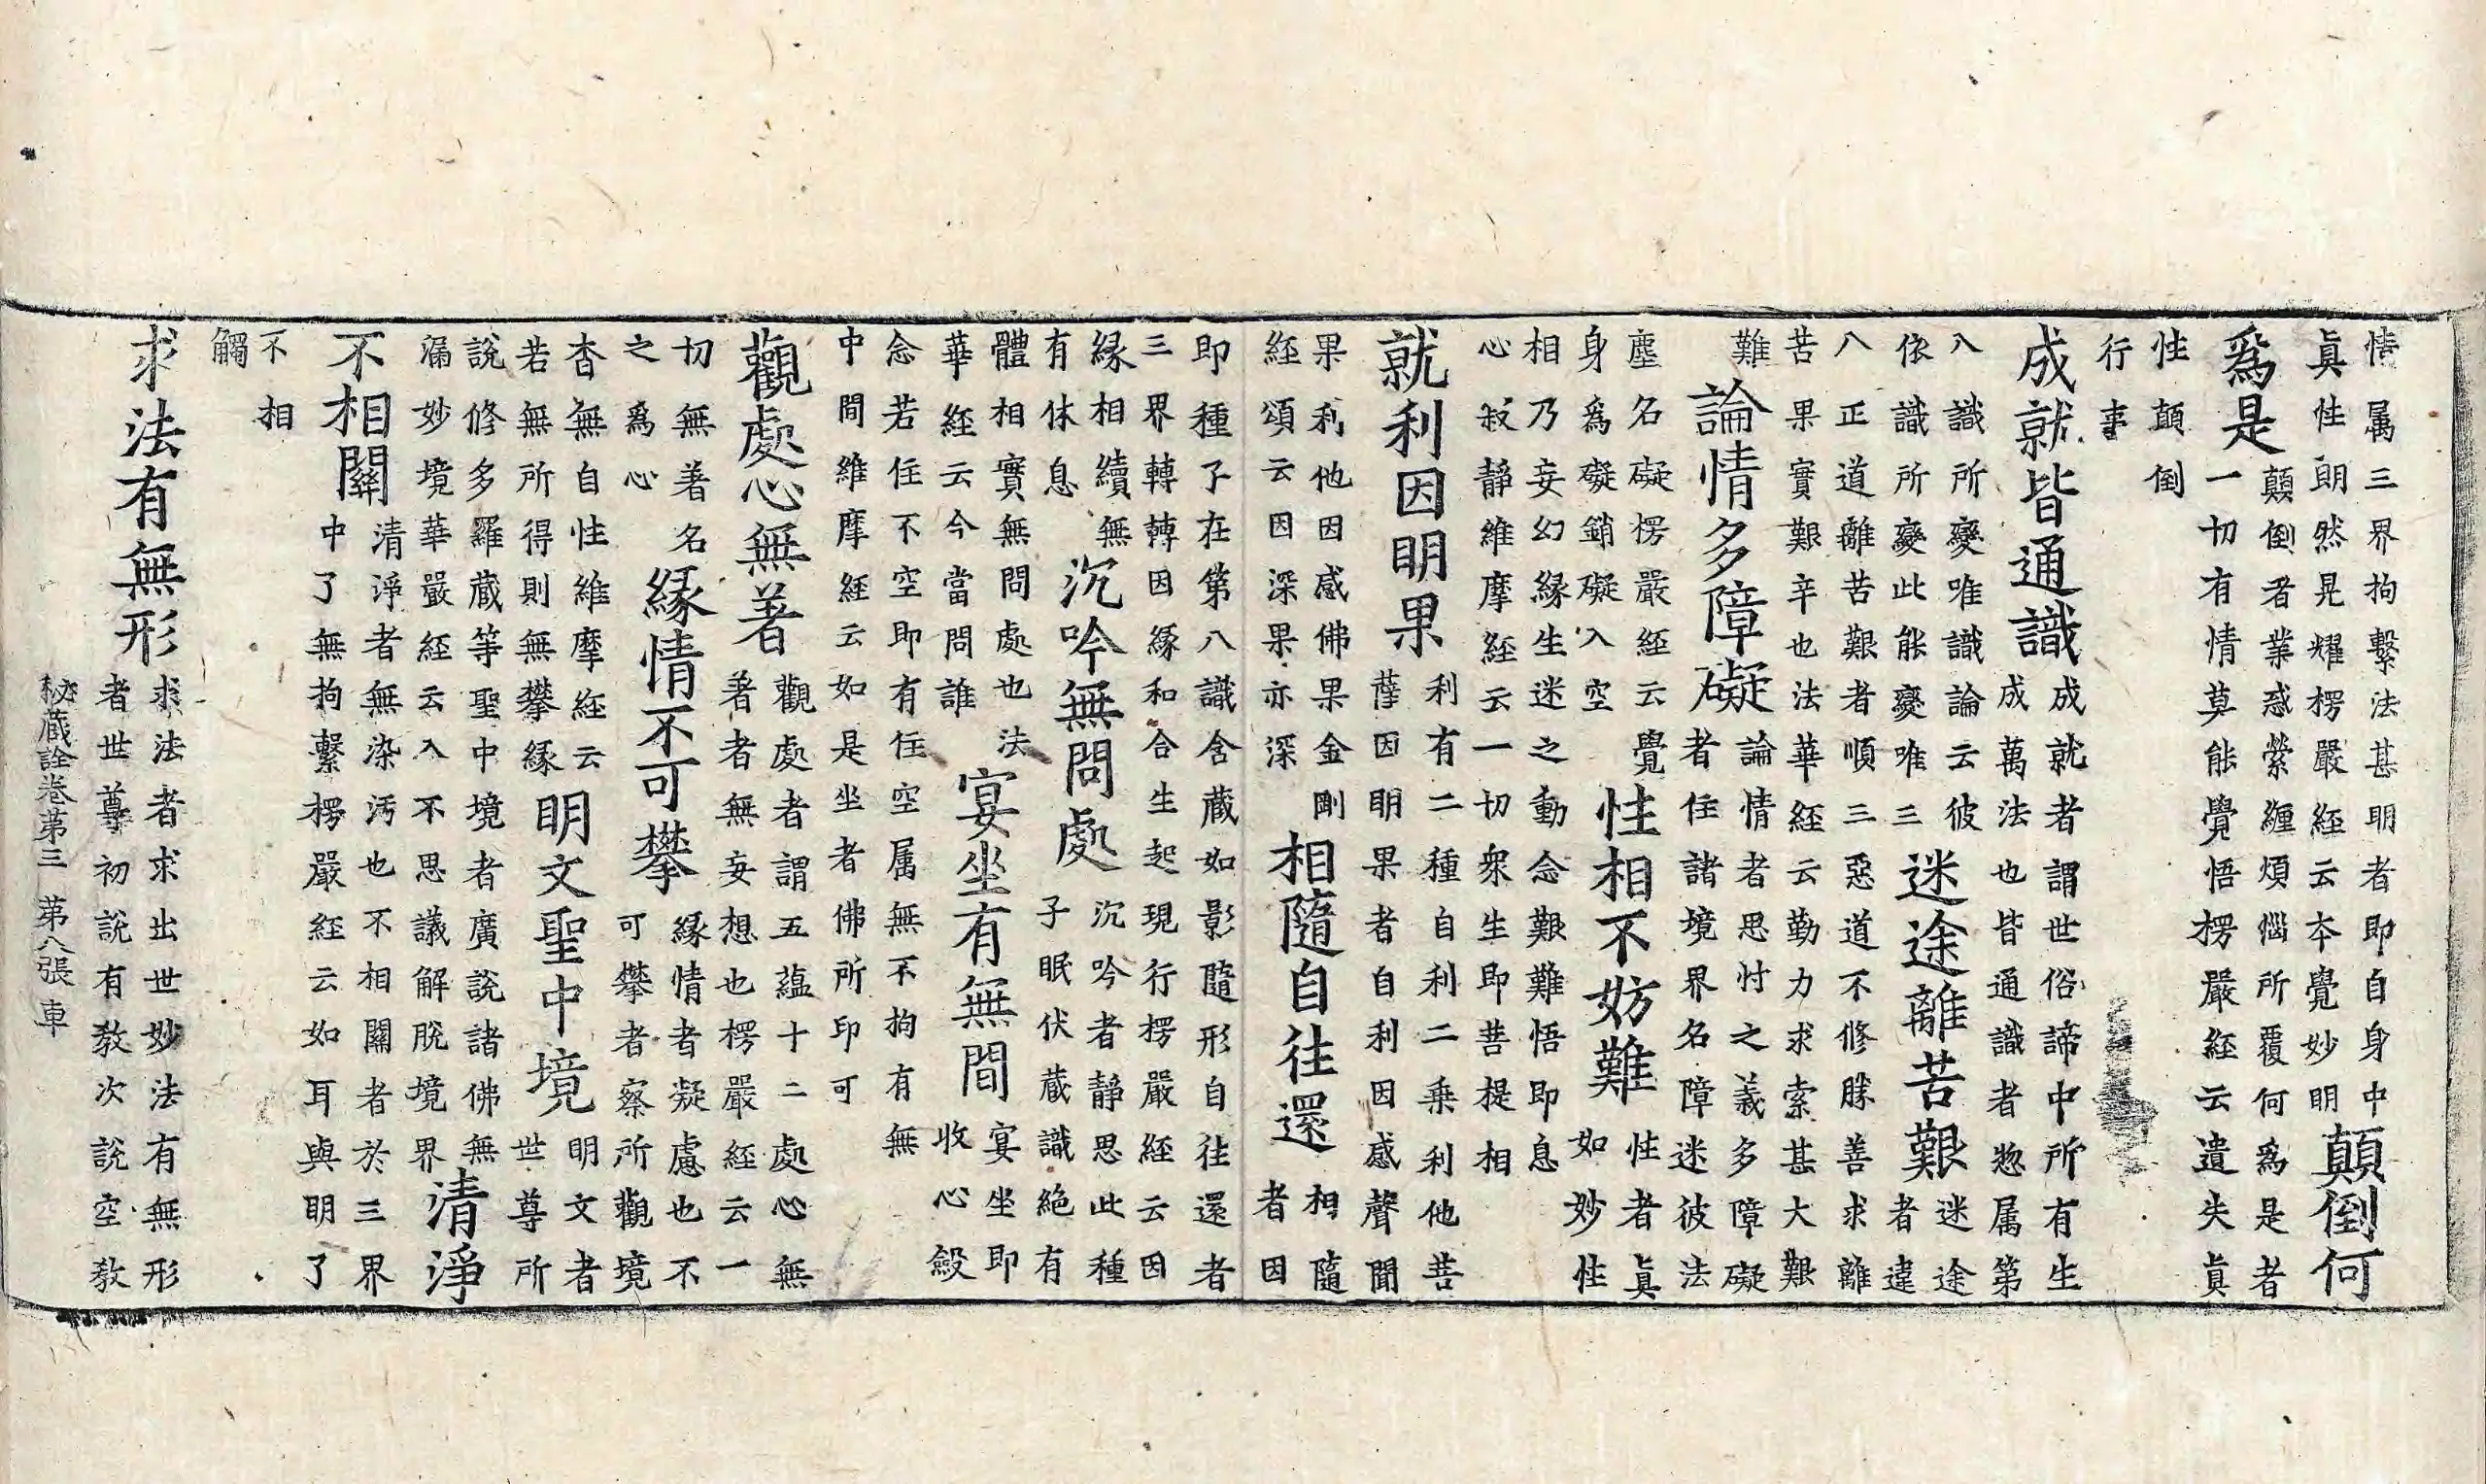 情属三界拘繫法甚明者即自身中
眞性朗然晃耀楞嚴経云本覺妙明
顛倒何
爲是
顛倒者業惑縈纏煩惱所覆何爲是者
一切有情莫能覺悟楞嚴経云遺失眞
性顛倒
行事
成就皆通識
成就者謂世俗諦中所有生
成萬法也皆通識者惣属第
八識所變唯識論云彼
依識所變此能變唯三
迷途離苦艱
迷途
者違
八正道離苦艱者順三惡道不修勝善求離
苦果實艱辛也法華経云勤力求索甚大艱
難
論情多障礙
論情者思忖之義多障礙
者住諸境界名障迷彼法
塵名礙楞嚴経云覺
身爲礙銷礙入空
性相不妨難
性者眞
如妙性
相乃妄幻緣生迷之動念艱難悟即息
心寂靜維摩経云一切衆生即菩提相
就利因明果
利有二種自利二乗利他菩
薩因明果者自利因感聲聞
果利他因感佛果金剛
経頌云因深果亦深
相隨自往還
相隨
者因
即種子在第八識含藏如影隨形自往還者
三界轉轉因緣和合生起現行楞嚴経云因
緣相續無
有休息
沉吟無問處
沉吟者靜思此種
子眠伏蔵識絶有
體相實無問處也法
華経云今當問誰
宴坐有無間
宴坐即
收心斂
念若住不空即有住空属無不拘有無
中間維摩経云如是坐者佛所印可
觀處心無著
觀處者謂五蘊十二處心無
著者無妄想也楞嚴経云一
切無著名
之爲心
緣情不可攀
緣情者凝慮也不
可攀者察所觀境
杳無自性維摩経云
若無所得則無攀緣
明文聖中境
明文者
世尊所
說修多羅蔵等聖中境者廣說諸佛無
漏妙境華嚴経云入不思議解脫境界
清淨
不相關
清淨者無染汚也不相關者於三界
中了無拘繫楞嚴経云如耳與明了
不相
觸
求法有無形
求法者求出世妙法有無形
者世尊初說有教次說空教
秘蔵詮卷第三 第八張 車